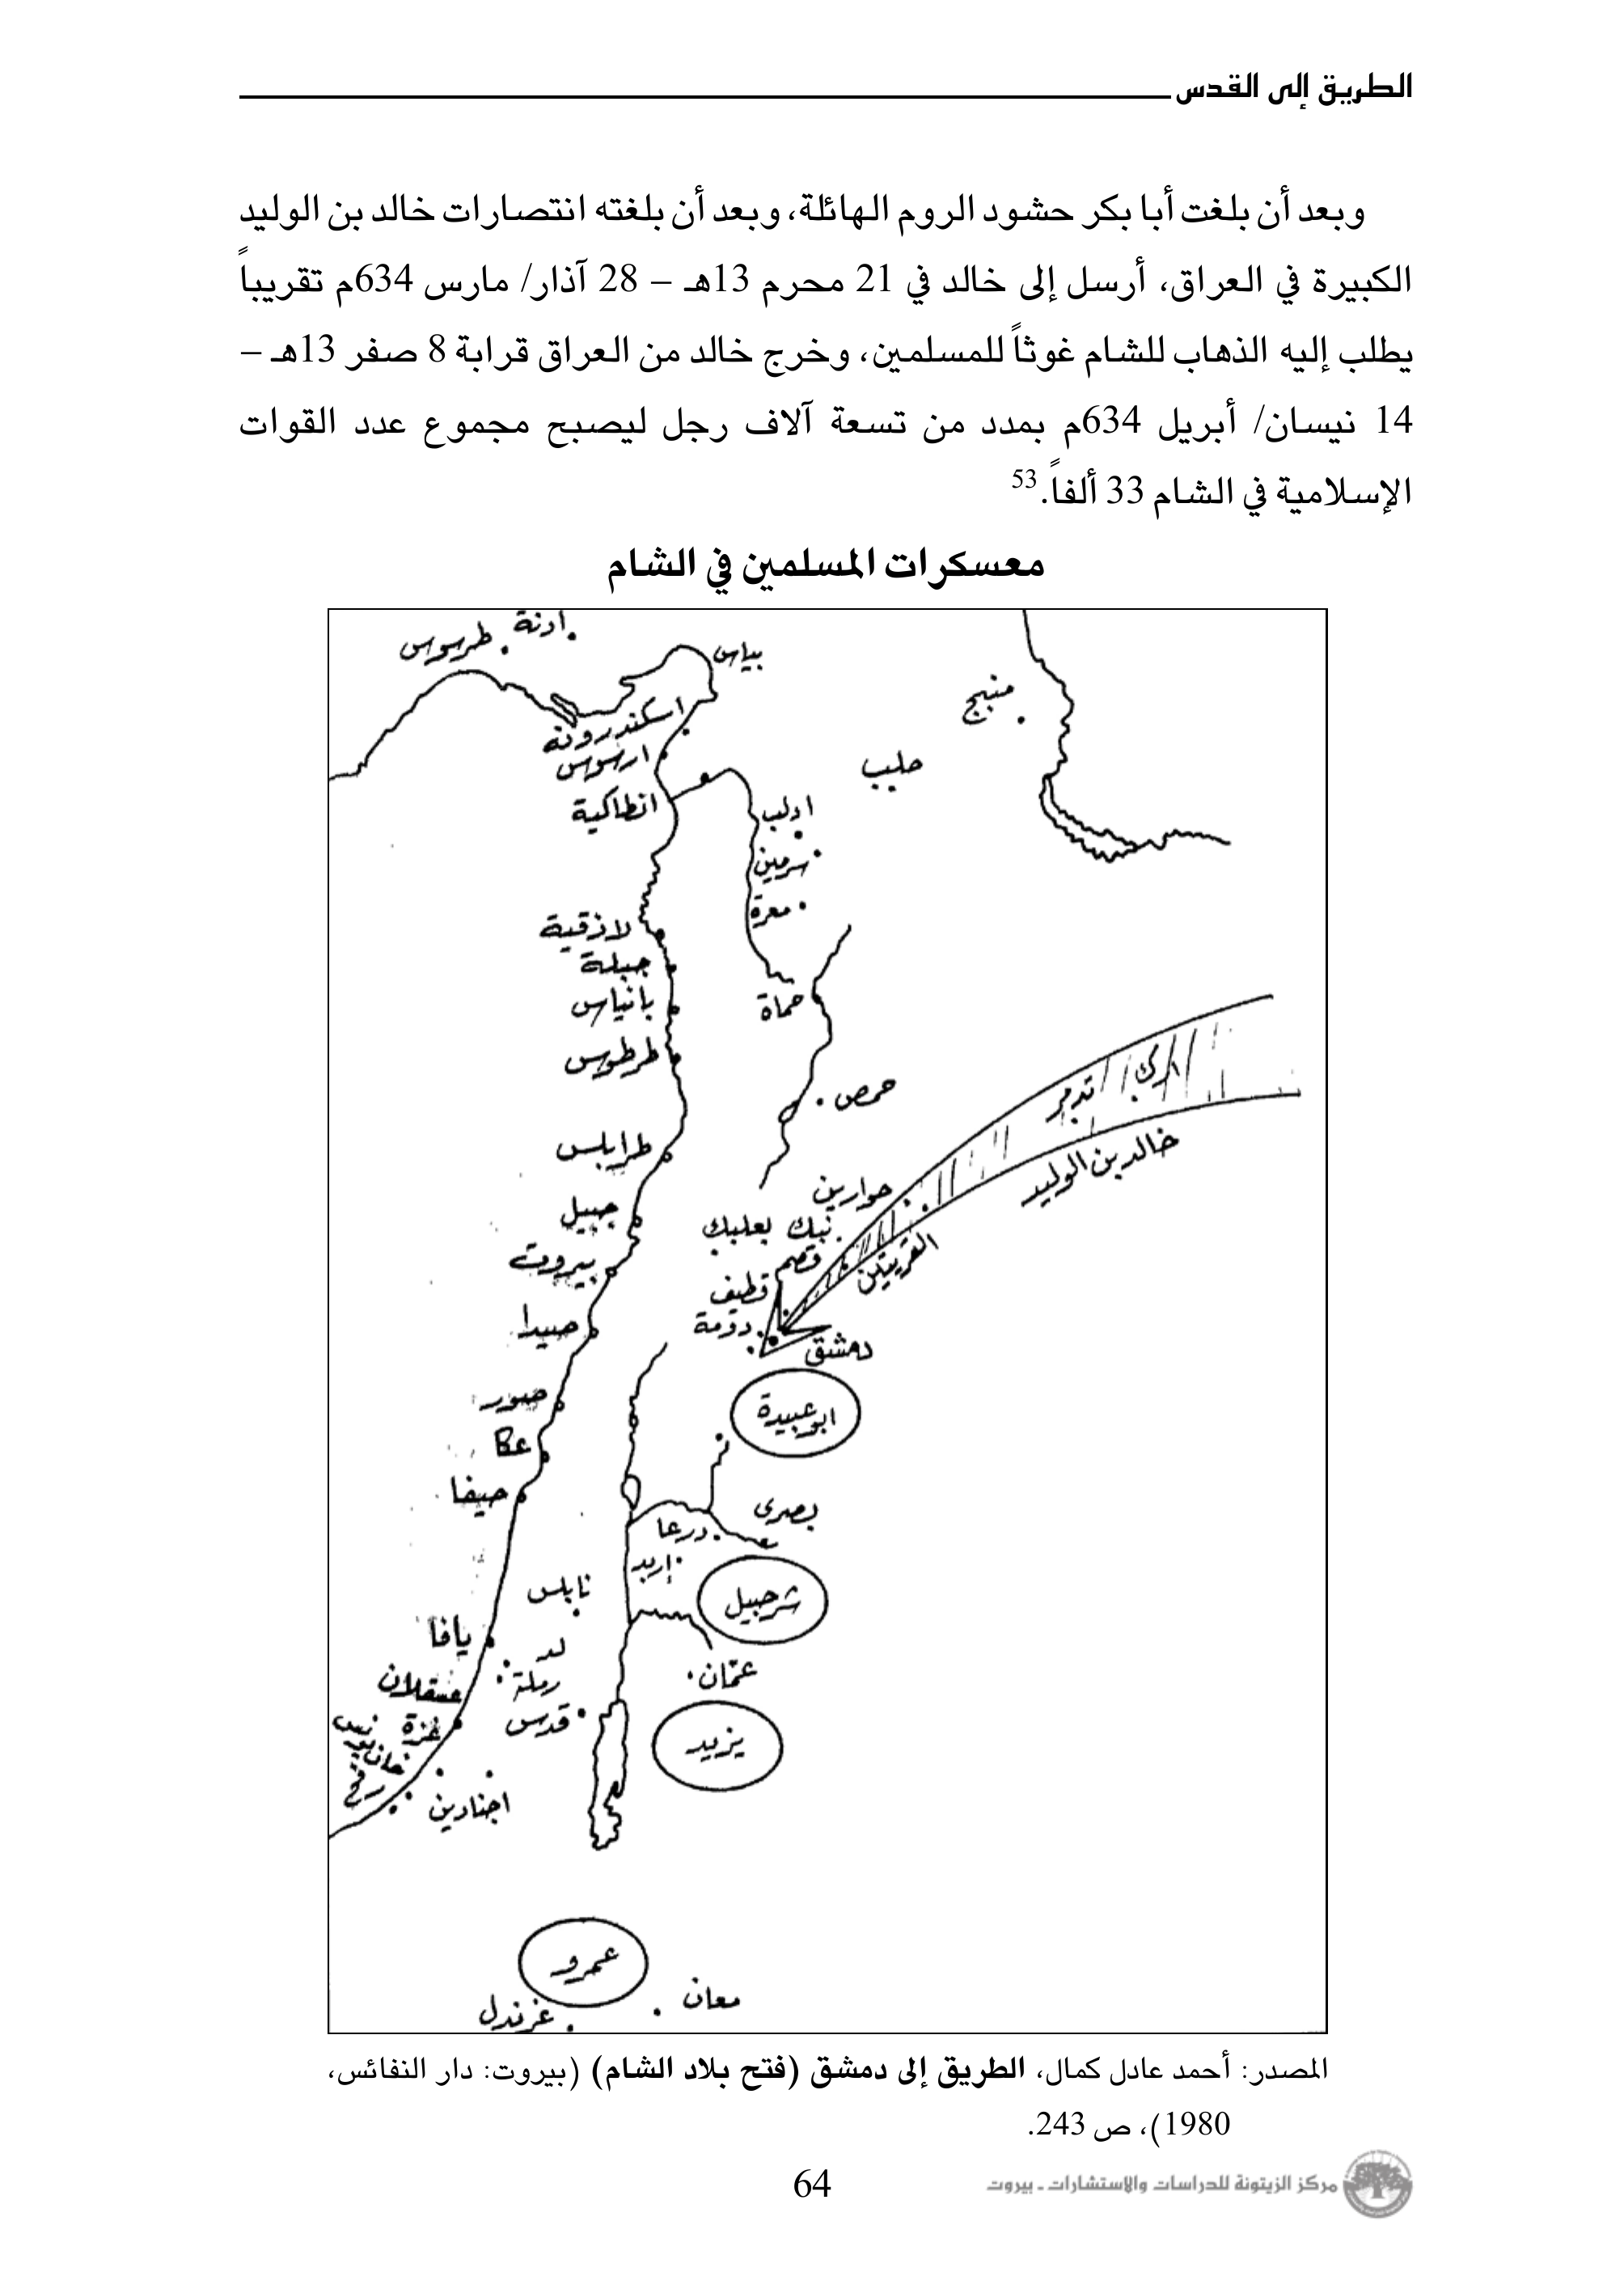 الطريق إلى القدس
وبعد أن بلغت أبا بكر حشود الروم الهائلة، وبعد أن بلغته انتصارات خالد بن الوليد
الكبيرة في العراق، أرسل إلى خالد في 21 محرم 13هـ – 28 آذار/ مارس 634م تقريباً
يطلب إليه الذهاب للشام غوثاً للمسلمين، وخرج خالد من العراق قرابة 8 صفر 13هـ –
14 نيسان/ أبريل 634م بمدد من تسعة آلاف رجل ليصبح مجموع عدد القوات
الإسلامية في الشام 33 ألفاً.53
معسكرات المسلمين في الشام
ادنة
طرسوس
بياس
منبج
اسكندرونة
ارسوس
حلب
انطاكية
ادلب
سرمين
معرة
لاذقية
جبلة
بانياس
حماة
طرطوس
ارك
تدمر
حمص
طرابلس
خالد بن الوليد
حوارين
جبيل
نبك بعلبك
القريتين
بيروت
قطيف
دومة
صيدا
دمشق
صور
ابوعبيدة
عكا
حيفا
بصرى
درعا
إربد
نابلس
شرحبيل
يافا
لد
رملة
عمّان
عسقلان
قدس
غزة
يزيد
رفح
اجنادين
عمرو
معان
غرندل
المصدر: أحمد عادل كمال، الطريق إلى دمشق (فتح بلاد الشام) (بيروت: دار النفائس،
1980)، ص 243.
64
مركز الزيتونة للدراسات والاستشارات - بيروت